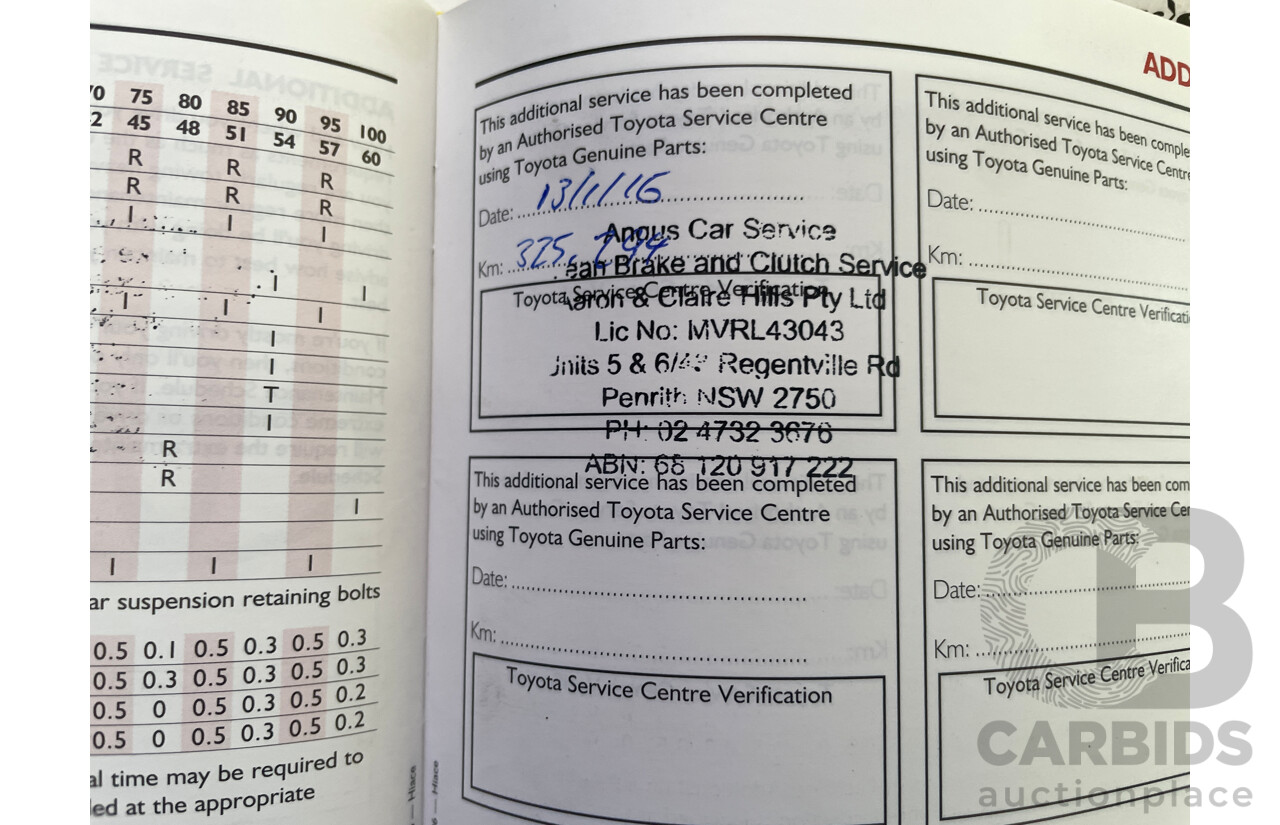 ADDITIONAL SERVICE
75 80 85 90 95 100
45 48 51 54 57 60
R R R
R R R
I I I
I I
I I I
I
I
T
I
R
R
I
I I I
ar suspension retaining bolts
0.5 0.1 0.5 0.3 0.5 0.3
0.5 0.3 0.5 0.3 0.5 0.3
0.5 0 0.5 0.3 0.5 0.2
0.5 0 0.5 0.3 0.5 0.2
al time may be required to
ed at the appropriate
— Hiace
— Hiace
ADD
This additional service has been completed
by an Authorised Toyota Service Centre
using Toyota Genuine Parts:
Date: 13/1/16
Km: 325,294
Toyota Service Centre Verification
Angus Car Service
ean Brake and Clutch Service
Aaron & Claire Hills Pty Ltd
Lic No: MVRL43043
Units 5 & 6/ Regentville Rd
Penrith NSW 2750
PH: 02 4732 3676
ABN: 68 120 917 222
This additional service has been comple
by an Authorised Toyota Service Centre
using Toyota Genuine Parts:
Date:
Km:
Toyota Service Centre Verificati
This additional service has been completed
by an Authorised Toyota Service Centre
using Toyota Genuine Parts:
Date:
Km:
Toyota Service Centre Verification
This additional service has been com
by an Authorised Toyota Service Cen
using Toyota Genuine Parts:
Date:
Km:
Toyota Service Centre Verifica
CB
CARBIDS
auctionplace